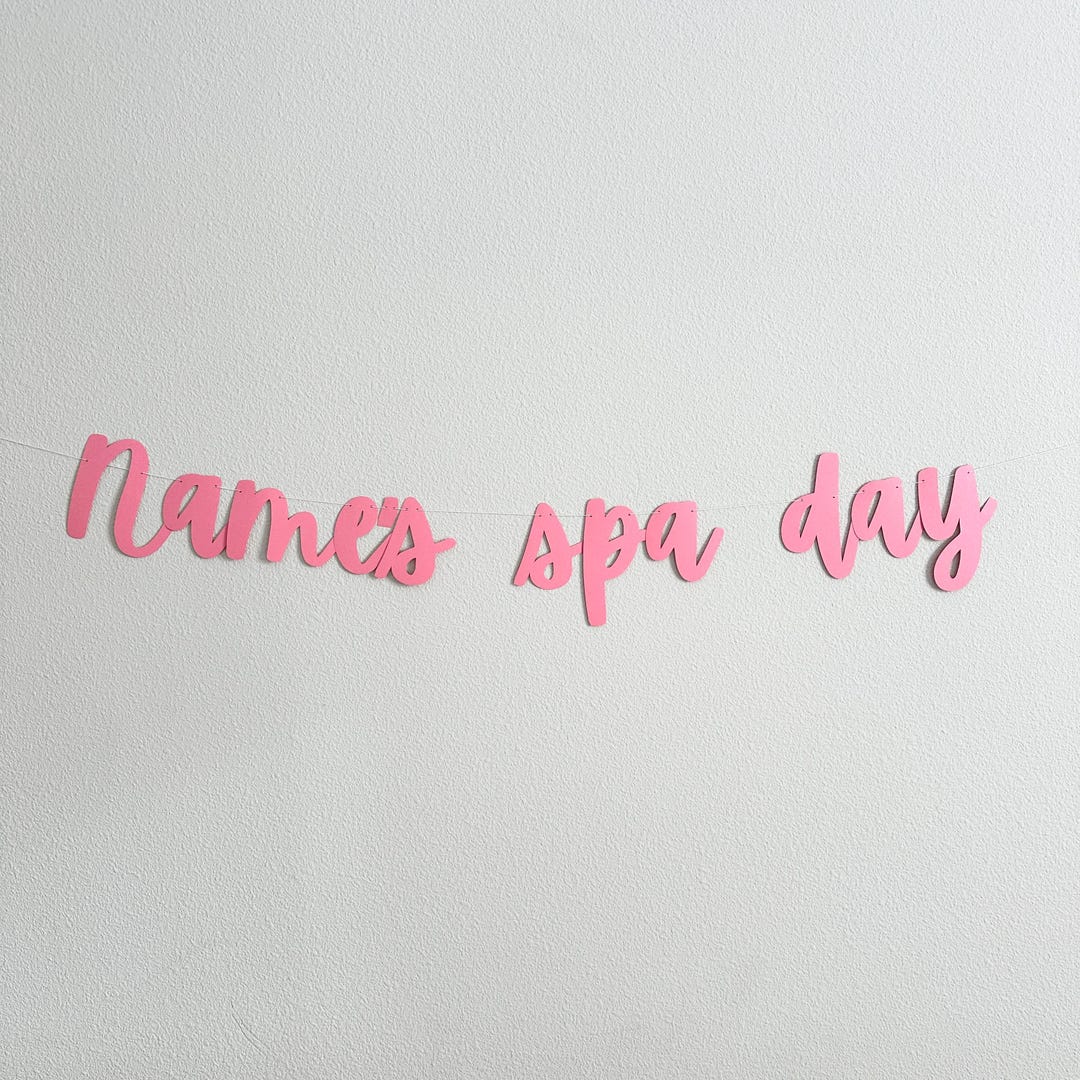 Name's spa day